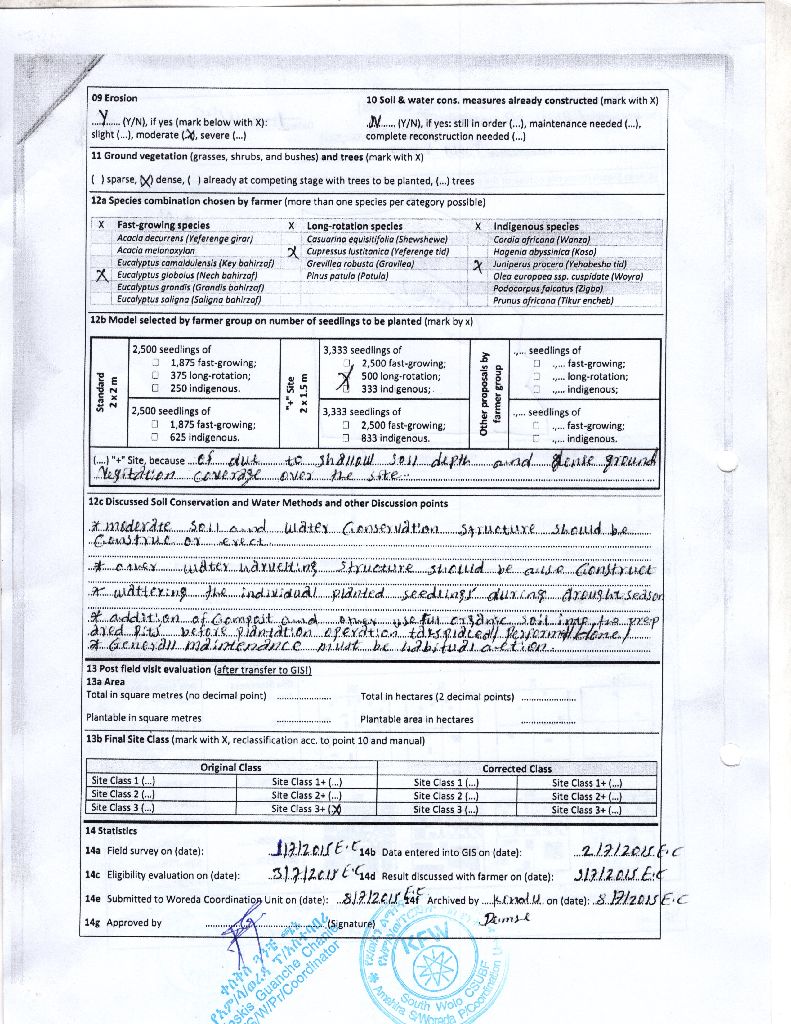 09 Erosion
10 Soil & water cons. measures already constructed (mark with X)
..Y.. (Y/N), if yes (mark below with X):
slight (...), moderate (X), severe (...)
..N.. (Y/N), if yes: still in order (...), maintenance needed (...),
complete reconstruction needed (...)
11 Ground vegetation (grasses, shrubs, and bushes) and trees (mark with X)
( ) sparse, (X) dense, ( ) already at competing stage with trees to be planted, (...) trees
12a Species combination chosen by farmer (more than one species per category possible)
X Fast-growing species
Acacia decurrens (Yeferenge girar)
Acacia melanoxylon
Eucalyptus camaldulensis (Key bahirzaf)
X Eucalyptus globolus (Nech bahirzaf)
Eucalyptus grandis (Grandis bahirzaf)
Eucalyptus saligna (Saligna bahirzaf)
X Long-rotation species
Casuarina equisitifolia (Shewshewe)
X Cupressus lustitanica (Yeferenge tid)
Grevillea robusta (Gravilea)
Pinus patula (Patula)
X Indigenous species
Cordia africana (Wanza)
Hagenia abyssinica (Koso)
X Juniperus procera (Yehabesha tid)
Olea europaea ssp. cuspidate (Woyra)
Podocarpus falcatus (Zigba)
Prunus africana (Tikur encheb)
12b Model selected by farmer group on number of seedlings to be planted (mark by x)
Standard
2 x 2 m
2,500 seedlings of
☐ 1,875 fast-growing;
☐ 375 long-rotation;
☐ 250 indigenous.
2,500 seedlings of
☐ 1,875 fast-growing;
☐ 625 indigenous.
"+" Site
2 x 1.5 m
3,333 seedlings of
☐ 2,500 fast-growing;
X 500 long-rotation;
☐ 333 indigenous;
3,333 seedlings of
☐ 2,500 fast-growing;
☐ 833 indigenous.
Other proposals by
farmer group
.,... seedlings of
☐ .,... fast-growing;
☐ .,... long-rotation;
☐ .,... indigenous.
.,... seedlings of
☐ .,... fast-growing;
☐ .,... indigenous.
(...) "+" Site, because of due to shallow soil depth and dense ground
vegitation coverage over the site.
12c Discussed Soil Conservation and Water Methods and other Discussion points
* moderate soil and water conservation structure should be
construc or erect
* other water harvesting structure should be also construct
* wattering the individual planted seedlings during drought season
* addition of compost and other useful organic soil into the prep
ared pits before plantation operation
* Generall maintenance must be habitual action.
13 Post field visit evaluation (after transfer to GIS!)
13a Area
Total in square metres (no decimal point) ................
Total in hectares (2 decimal points) ................
Plantable in square metres ................
Plantable area in hectares ................
13b Final Site Class (mark with X, reclassification acc. to point 10 and manual)
Original Class
Corrected Class
Site Class 1 (...) Site Class 1+ (...) Site Class 1 (...) Site Class 1+ (...)
Site Class 2 (...) Site Class 2+ (...) Site Class 2 (...) Site Class 2+ (...)
Site Class 3 (...) Site Class 3+ (X) Site Class 3 (...) Site Class 3+ (...)
14 Statistics
14a Field survey on (date): 1/7/2015 E.C
14b Data entered into GIS on (date): 2/7/2015 E.C
14c Eligibility evaluation on (date): 3/7/2015 E.C
14d Result discussed with farmer on (date): 3/7/2015 E.C
14e Submitted to Woreda Coordination Unit on (date): 8/7/2015 E.C
14f Archived by on (date): 8/7/2015 E.C
14g Approved by ................ (Signature)
Guanche Chanie
/W/Pr/Coordinator
KFW
South Wolo CSUBF
Amahra S/Woreda P/Coordination U